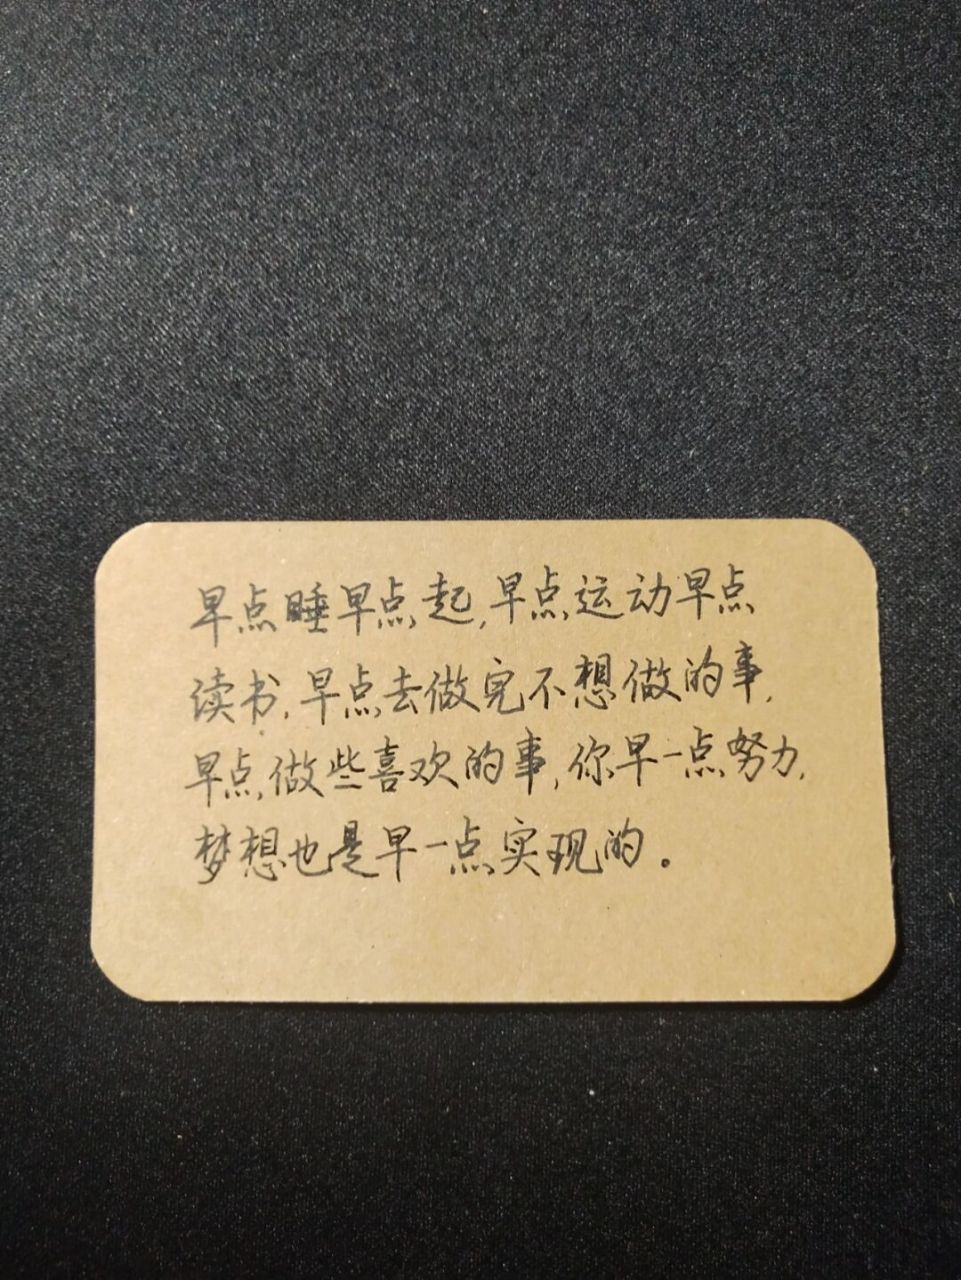 早点睡早点起,早点运动早点
读书,早点去做完不想做的事,
早点做些喜欢的事,你早一点努力,
梦想也是早一点实现的。